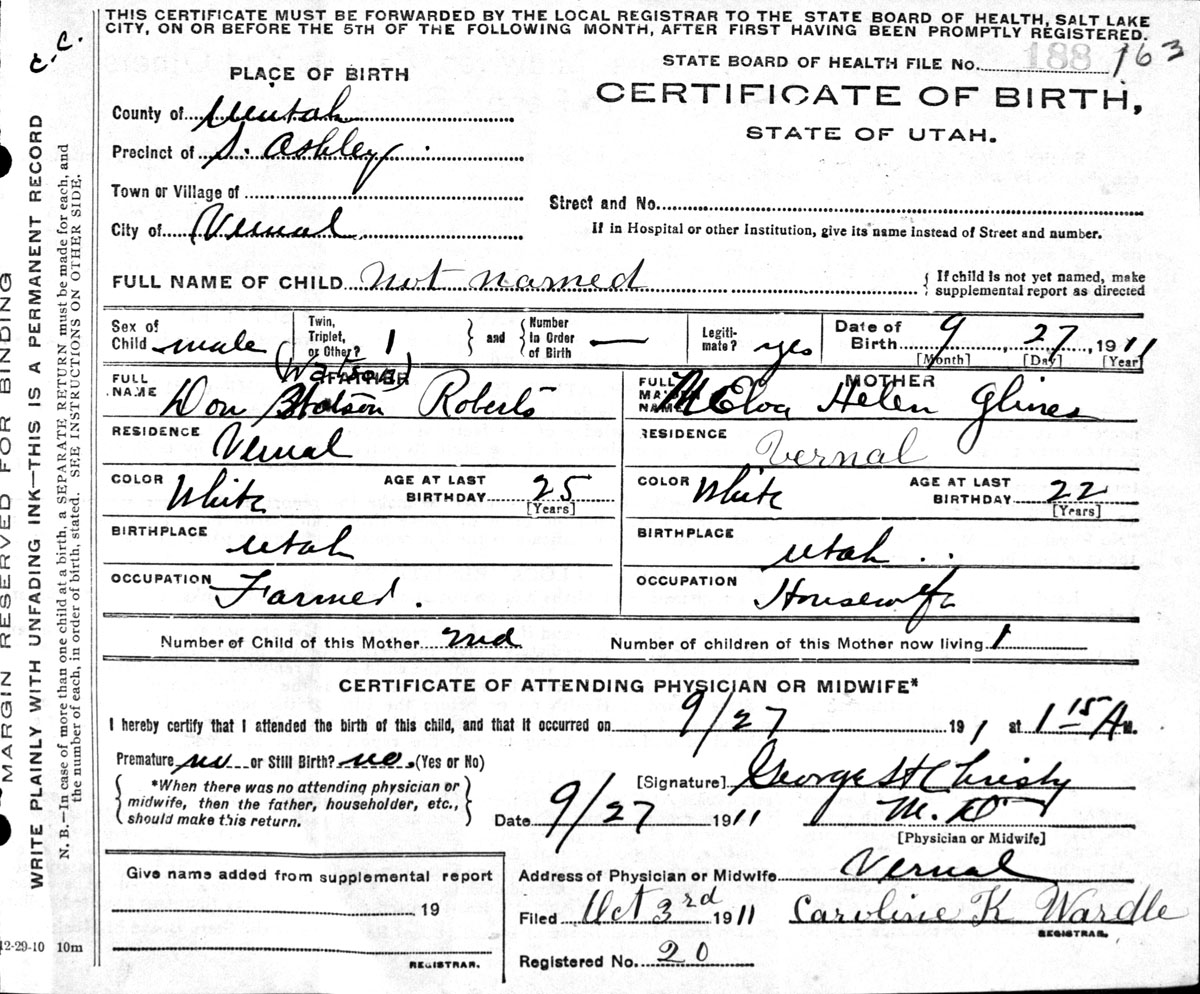 THIS CERTIFICATE MUST BE FORWARDED BY THE LOCAL REGISTRAR TO THE STATE BOARD OF HEALTH, SALT LAKE
CITY, ON OR BEFORE THE 5TH OF THE FOLLOWING MONTH, AFTER FIRST HAVING BEEN PROMPTLY REGISTERED.
C. C.
STATE BOARD OF HEALTH FILE No. 188 163
PLACE OF BIRTH
CERTIFICATE OF BIRTH,
STATE OF UTAH.
County of Uintah
Precinct of S. Ashley
Town or Village of
Street and No.
City of Vernal
If in Hospital or other Institution, give its name instead of Street and number.
FULL NAME OF CHILD not named
{ If child is not yet named, make
supplemental report as directed
Sex of Child male
Twin, Triplet, or Other? 1 } and { Number In Order of Birth —
Legiti-mate? yes
Date of Birth 9, 27, 1911
[Month] [Day] [Year]
FATHER
FULL NAME (Watson) Don Roberts
MOTHER
FULL MAIDEN NAME Elva Helen Glines
RESIDENCE Vernal
RESIDENCE Vernal
COLOR White AGE AT LAST BIRTHDAY 25 [Years]
COLOR White AGE AT LAST BIRTHDAY 22 [Years]
BIRTHPLACE Utah
BIRTHPLACE Utah
OCCUPATION Farmer.
OCCUPATION Housewife
Number of Child of this Mother 2nd
Number of children of this Mother now living 1
CERTIFICATE OF ATTENDING PHYSICIAN OR MIDWIFE*
I hereby certify that I attended the birth of this child, and that it occurred on 9/27 191, at 1 15 A M.
Premature no or Still Birth? no. (Yes or No)
{ *When there was no attending physician or
midwife, then the father, householder, etc.,
should make this return. }
[Signature] George H Christy
M. D
[Physician or Midwife]
Date 9/27 1911
Give name added from supplemental report
19
REGISTRAR.
Address of Physician or Midwife Vernal
Filed Oct 3rd 1911 Caroline K Wardle
REGISTRAR.
Registered No. 20
12-29-10 10m
MARGIN RESERVED FOR BINDING
WRITE PLAINLY WITH UNFADING INK—THIS IS A PERMANENT RECORD
N. B.—In case of more than one child at a birth, a SEPARATE RETURN must be made for each, and
the number of each, in order of birth, stated. SEE INSTRUCTIONS ON OTHER SIDE.